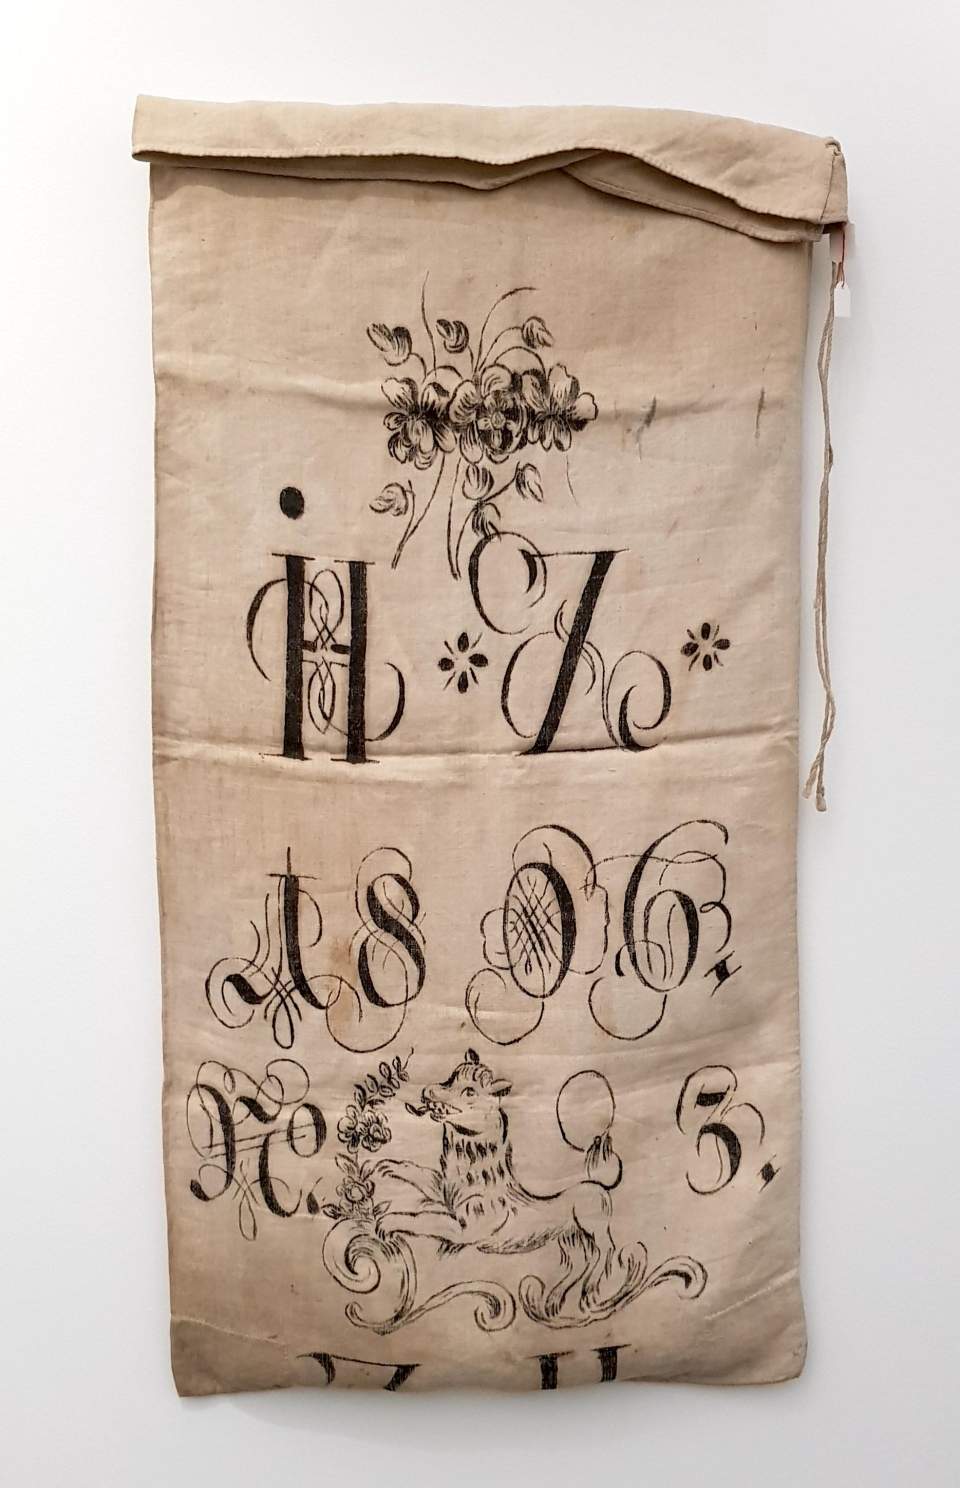 H * Z *
1806.
No. 3.